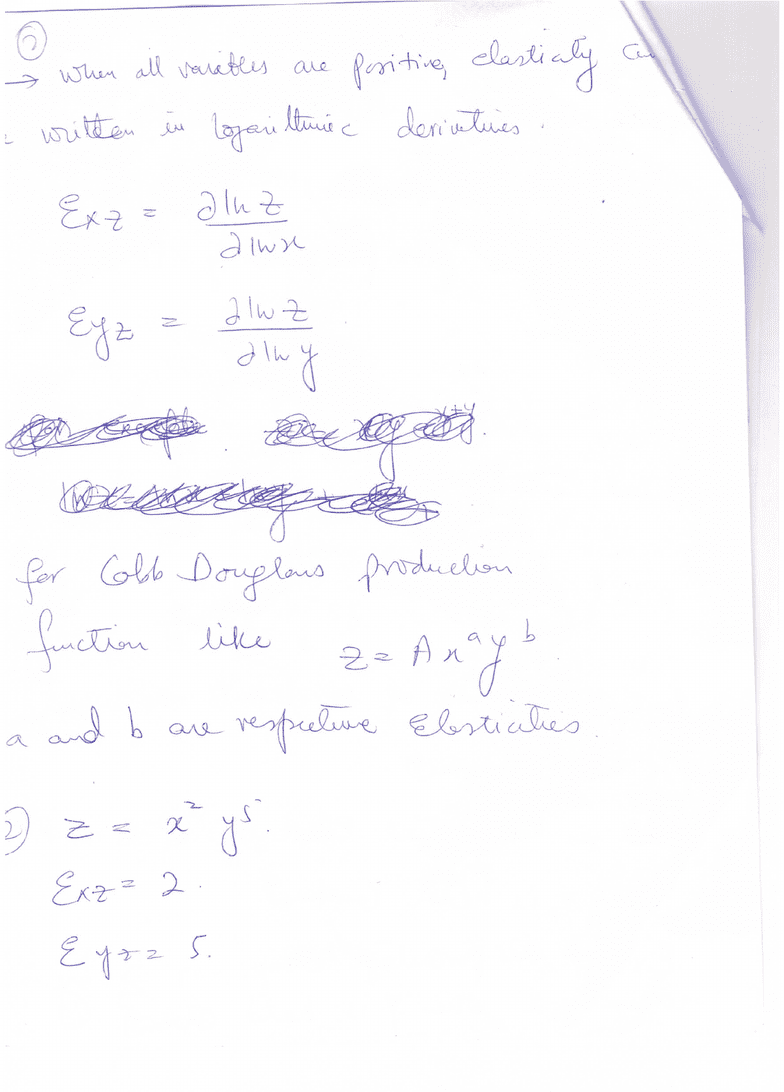 ②
→ When all variables are positive, elasticity can
written in logarithmic derivatives.
Exz = ∂ ln z / ∂ ln x
Eyz = ∂ ln z / ∂ ln y
for Cobb Douglas production
function like z = A x^a y^b
a and b are respective Elasticities.
2) z = x² y⁵.
Exz = 2.
Eyz = 5.